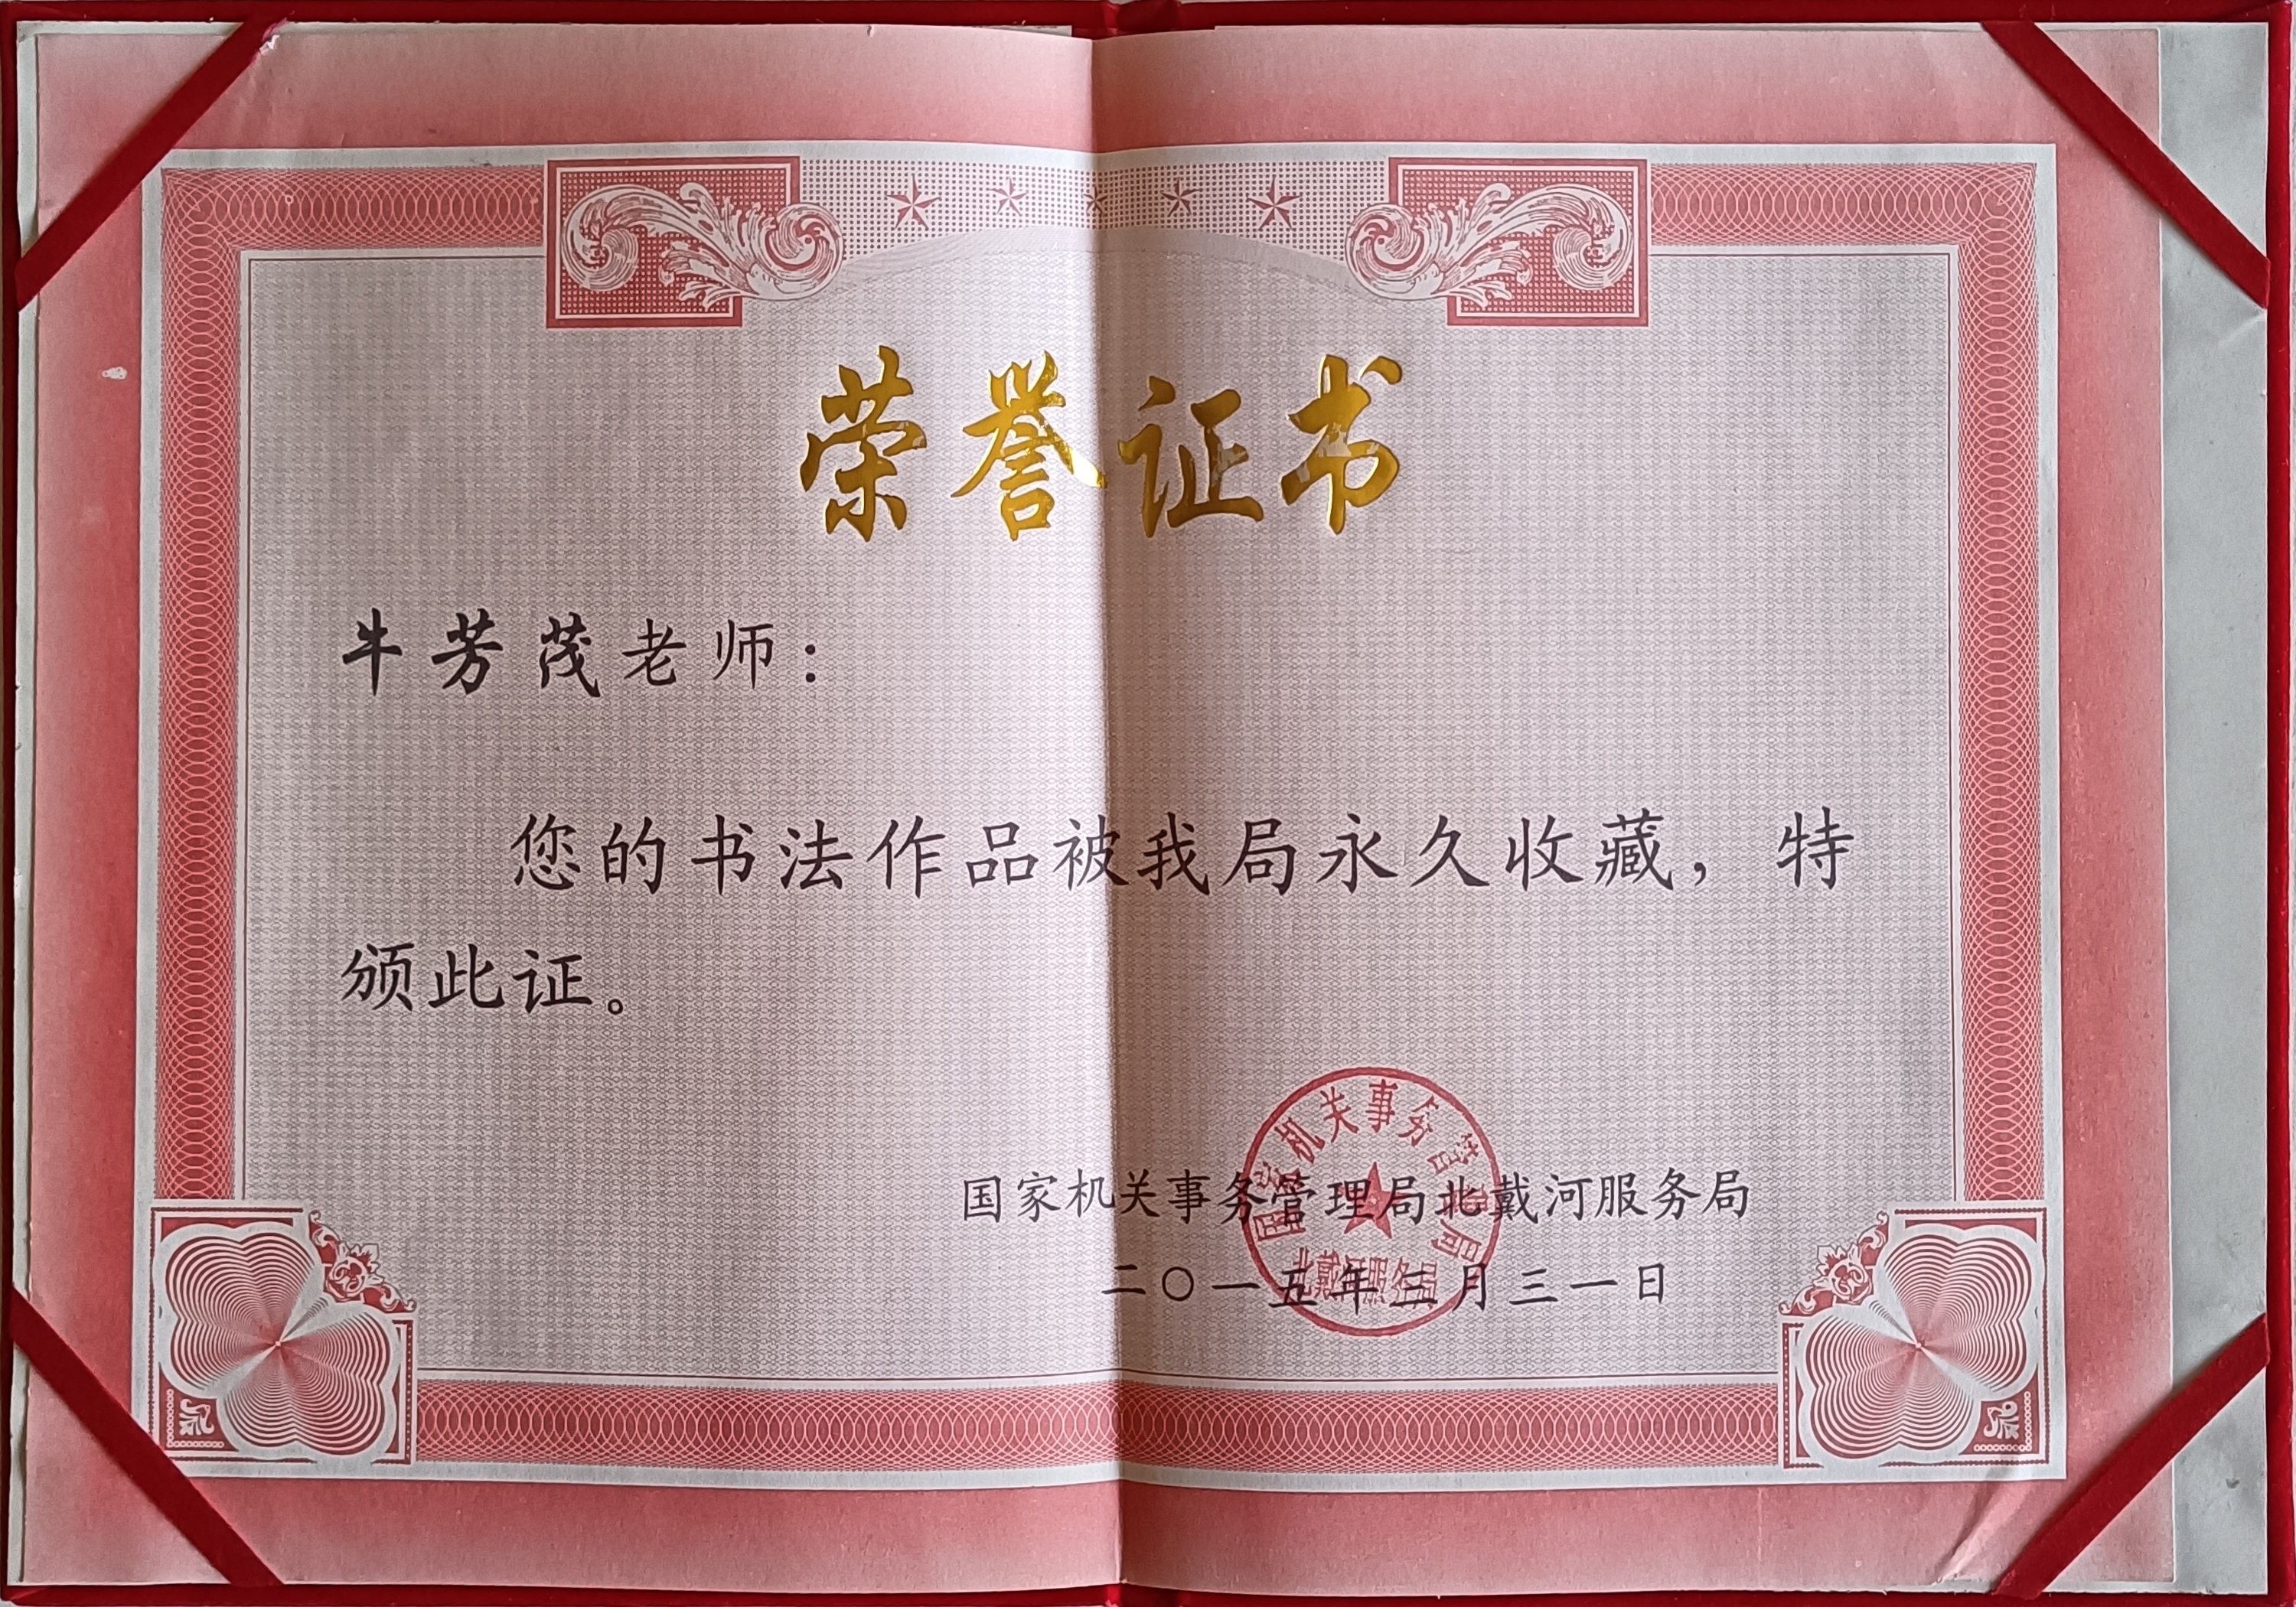 荣誉证书
牛芳茂老师：
您的书法作品被我局永久收藏，特
颁此证。
国家机关事务管理局北戴河服务局
二〇一五年三月三一日
国家机关事务管理局
北戴河服务局